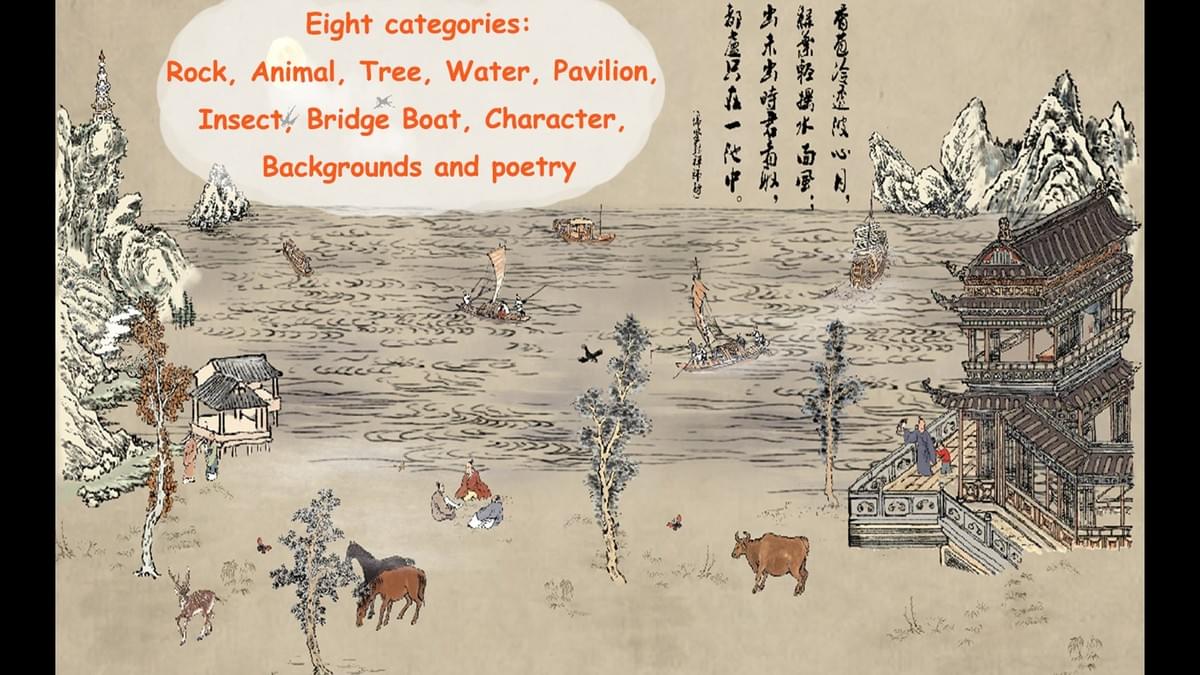 Eight categories:
Rock, Animal, Tree, Water, Pavilion,
Insect, Bridge Boat, Character,
Backgrounds and poetry
菡萏冷透波心月，
綠葉輕水面風；
出未出時君看取，
都盧只在一池中。